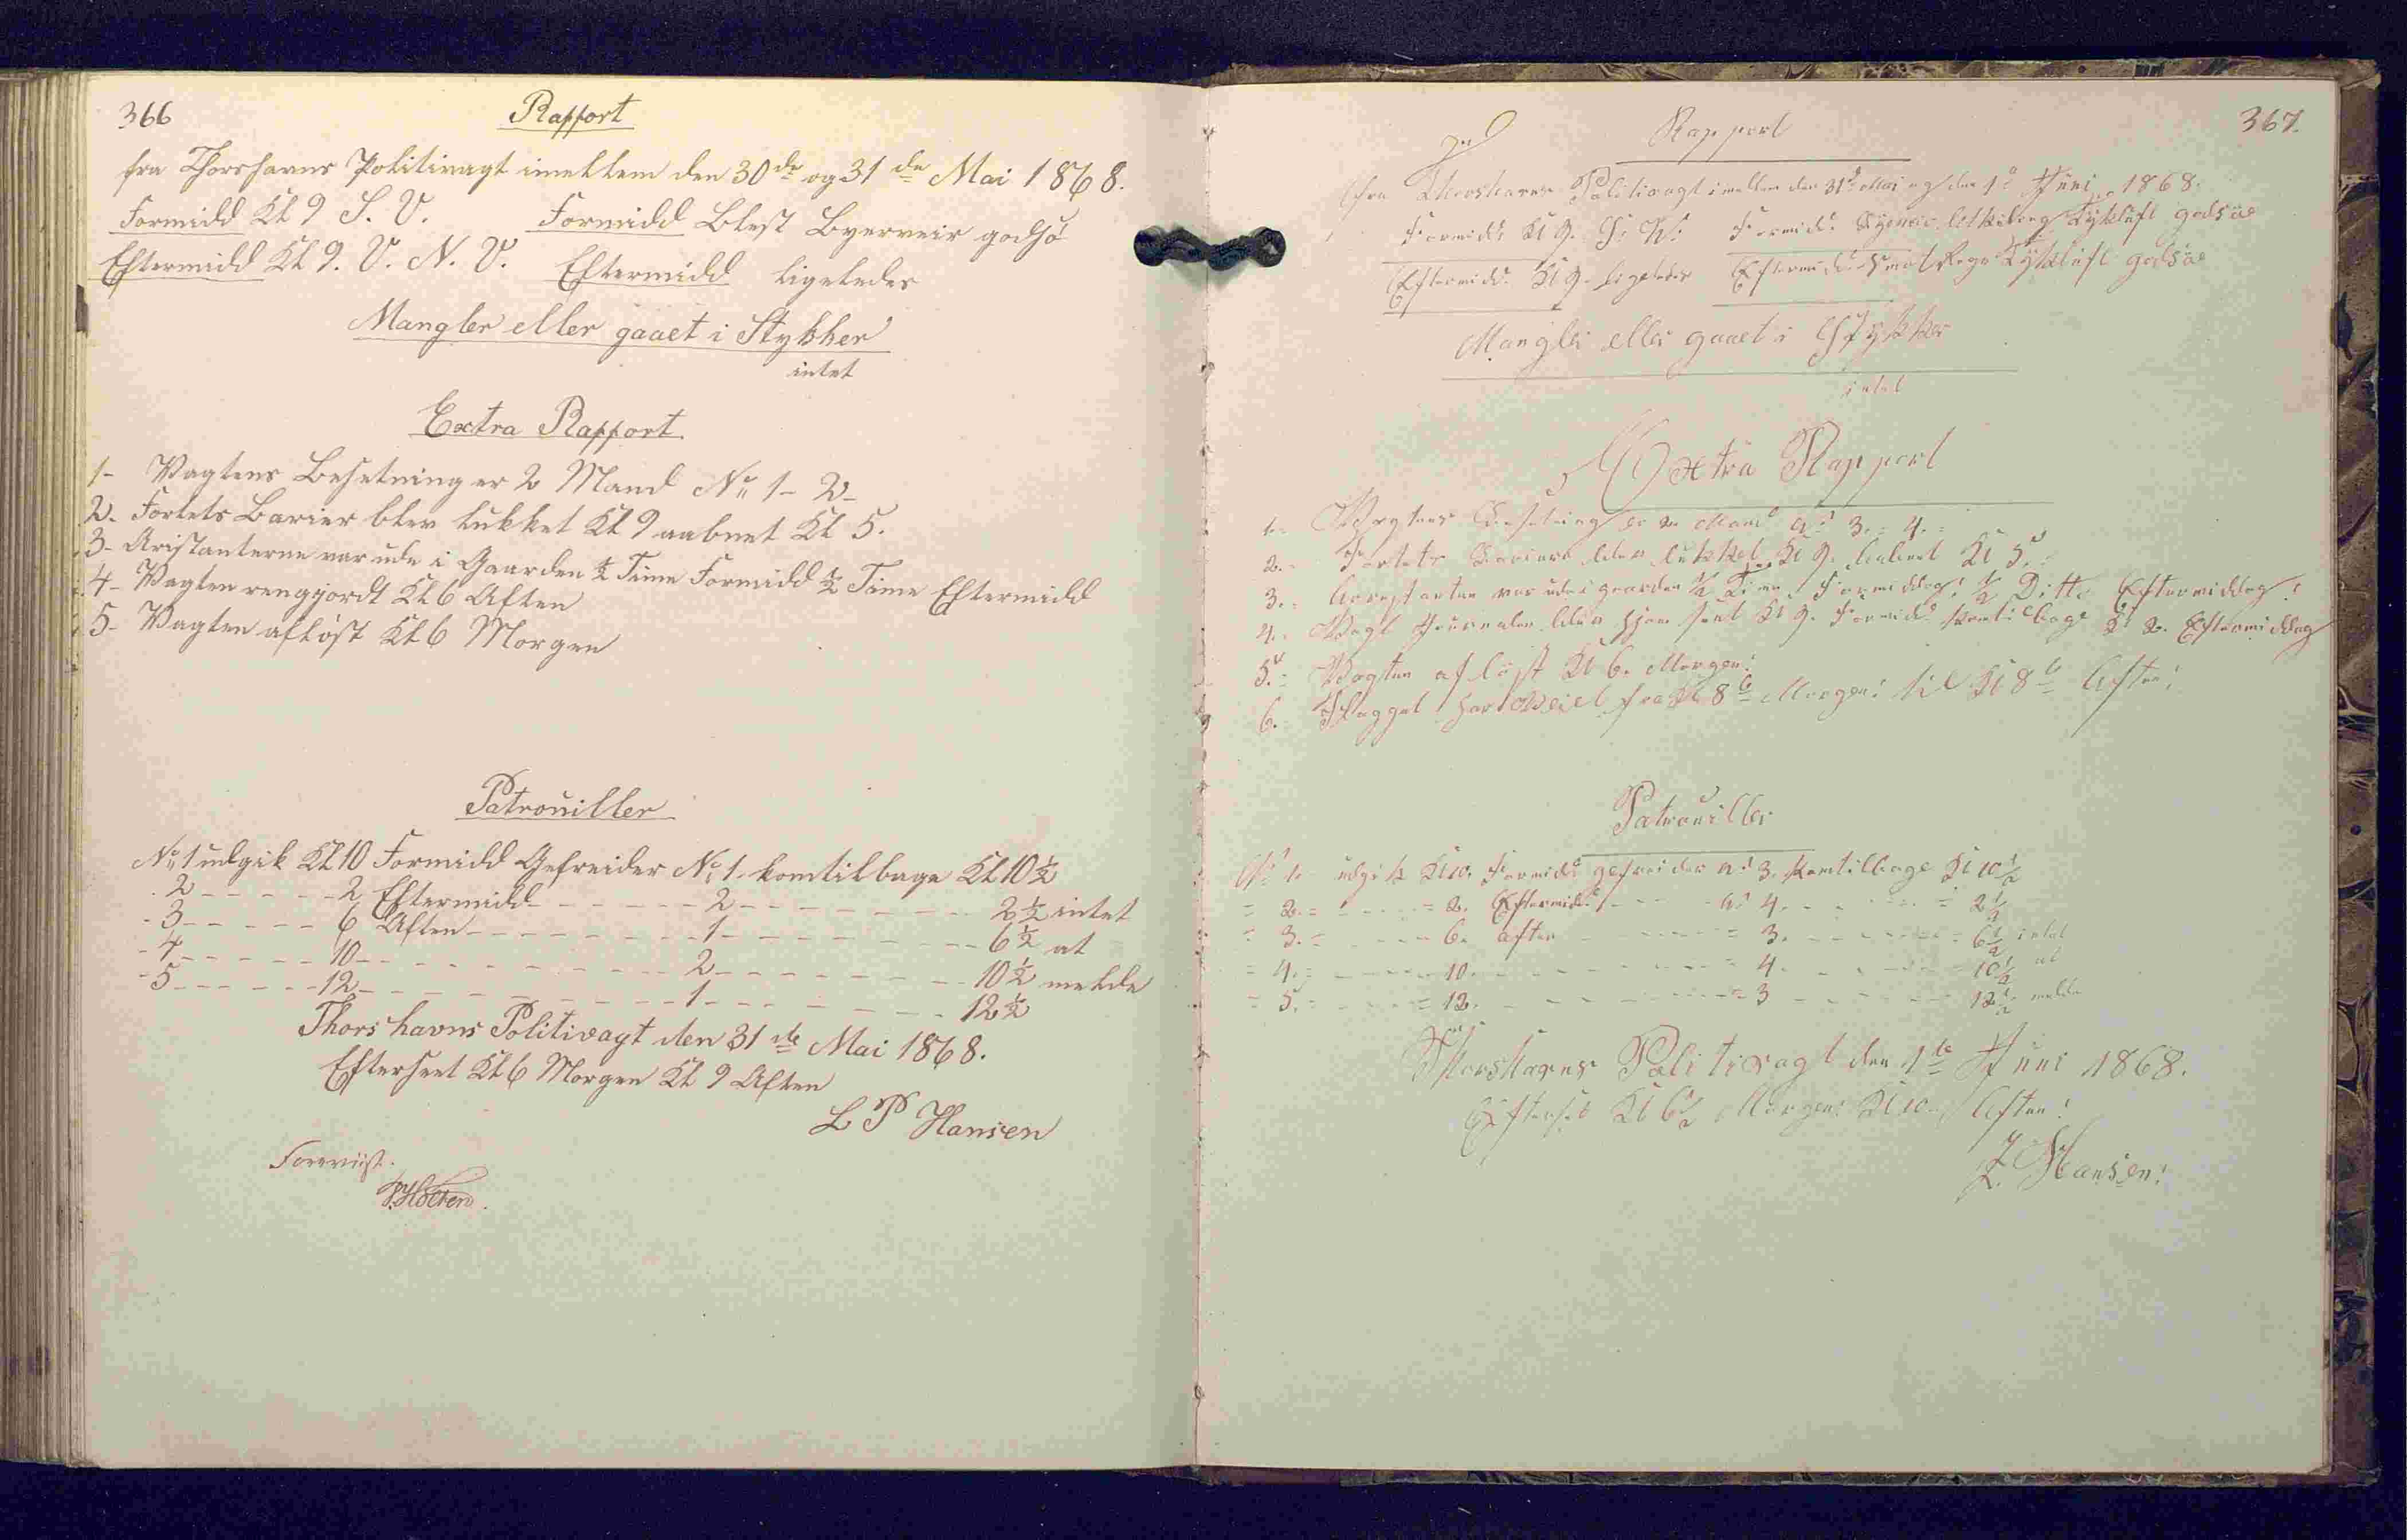 366
Rapport
fra Thorshavns Politivagt imellem den 30de og 31de Mai 1868.
Formidd Kl 9 S. V. Formidd Blest Byerveir godsø
Eftermidd Kl 9. V. N. V. Eftermidd ligeledes
Mangler eller gaaet i Stykker
intet
Extra Rapport
1- Vagtens Besetning er 2 Mand No 1- 2-
2. Fortets Barier blev lukket Kl 9 aabnet Kl 5.
3- Aristanterne var ude i Gaarden ½ Time Formidd ½ Time Eftermidd
4- Vagten rengjordt Kl 6 Aften
5- Vagten afløst Kl 6 Morgen
Patrouiller
No 1 udgik Kl 10 Formidd Gefreider No 1 kom tilbage Kl 10½
- 2 - - - - - 2 Eftermidd - - - - - 2 - - - - - 2½ intet
- 3 - - - - - 6 Aften - - - - - 1 - - - - - 6½ at
- 4 - - - - - 10 - - - - - 2 - - - - - 10½ melde
- 5 - - - - - 12 - - - - - 1 - - - - - 12½
Thorshavns Politivagt den 31de Mai 1868.
Efterseet Kl 6 Morgen Kl 9 Aften
L P Hansen
Foreviist.
HHolten.
367.
Rapport
fra Thorshavns Politivagt imellem den 31te Mai og den 1te Juni 1868.
Formidd. Kl 9. S. V. Formidd. Tyklüft godsøe
Eftermidd. Kl 9. ligeledes Eftermidd. Smat Regn Tyklüft godsøe
Mangler eller gaaet i Stykker
intet
Extra Rapport
1. Vagtens Besetning er 2 Mand No 3. 4.
2. Fortets Bariere blev lukket Kl 9. Aabnet Kl 5.
3. Arrestanten var ude i gaarden ½ Time Formiddag. ½ Ditto Eftermiddag.
4. Vagt Journalen blev hjem sent Kl 9. Formidd. kom tilbage Kl 2. Eftermiddag
5. Vagten afløst Kl 6. Morgen.
6. Flagget har Veiet fra Kl 8 Morgen til Kl 8 Aften.
Patrouiller
No 1. udgik Kl 10. Formidd. gefreider No 3. kom tilbage Kl 10½
= 2. = - - - = 2. Eftermidd. - - - No 4. - - - = 2½
= 3. = - - - 6. Aften - - - = 3. - - - = 6½ intet
= 4. = - - - 10. - - - = 4. - - - 10½ at
= 5. = - - - = 12. - - - = 3 - - - 12½ melde
Thorshavns Politivagt den 1te Juni 1868.
Efterset Kl 6½ Morgen. Kl 10 Aften.
J. Hansen.